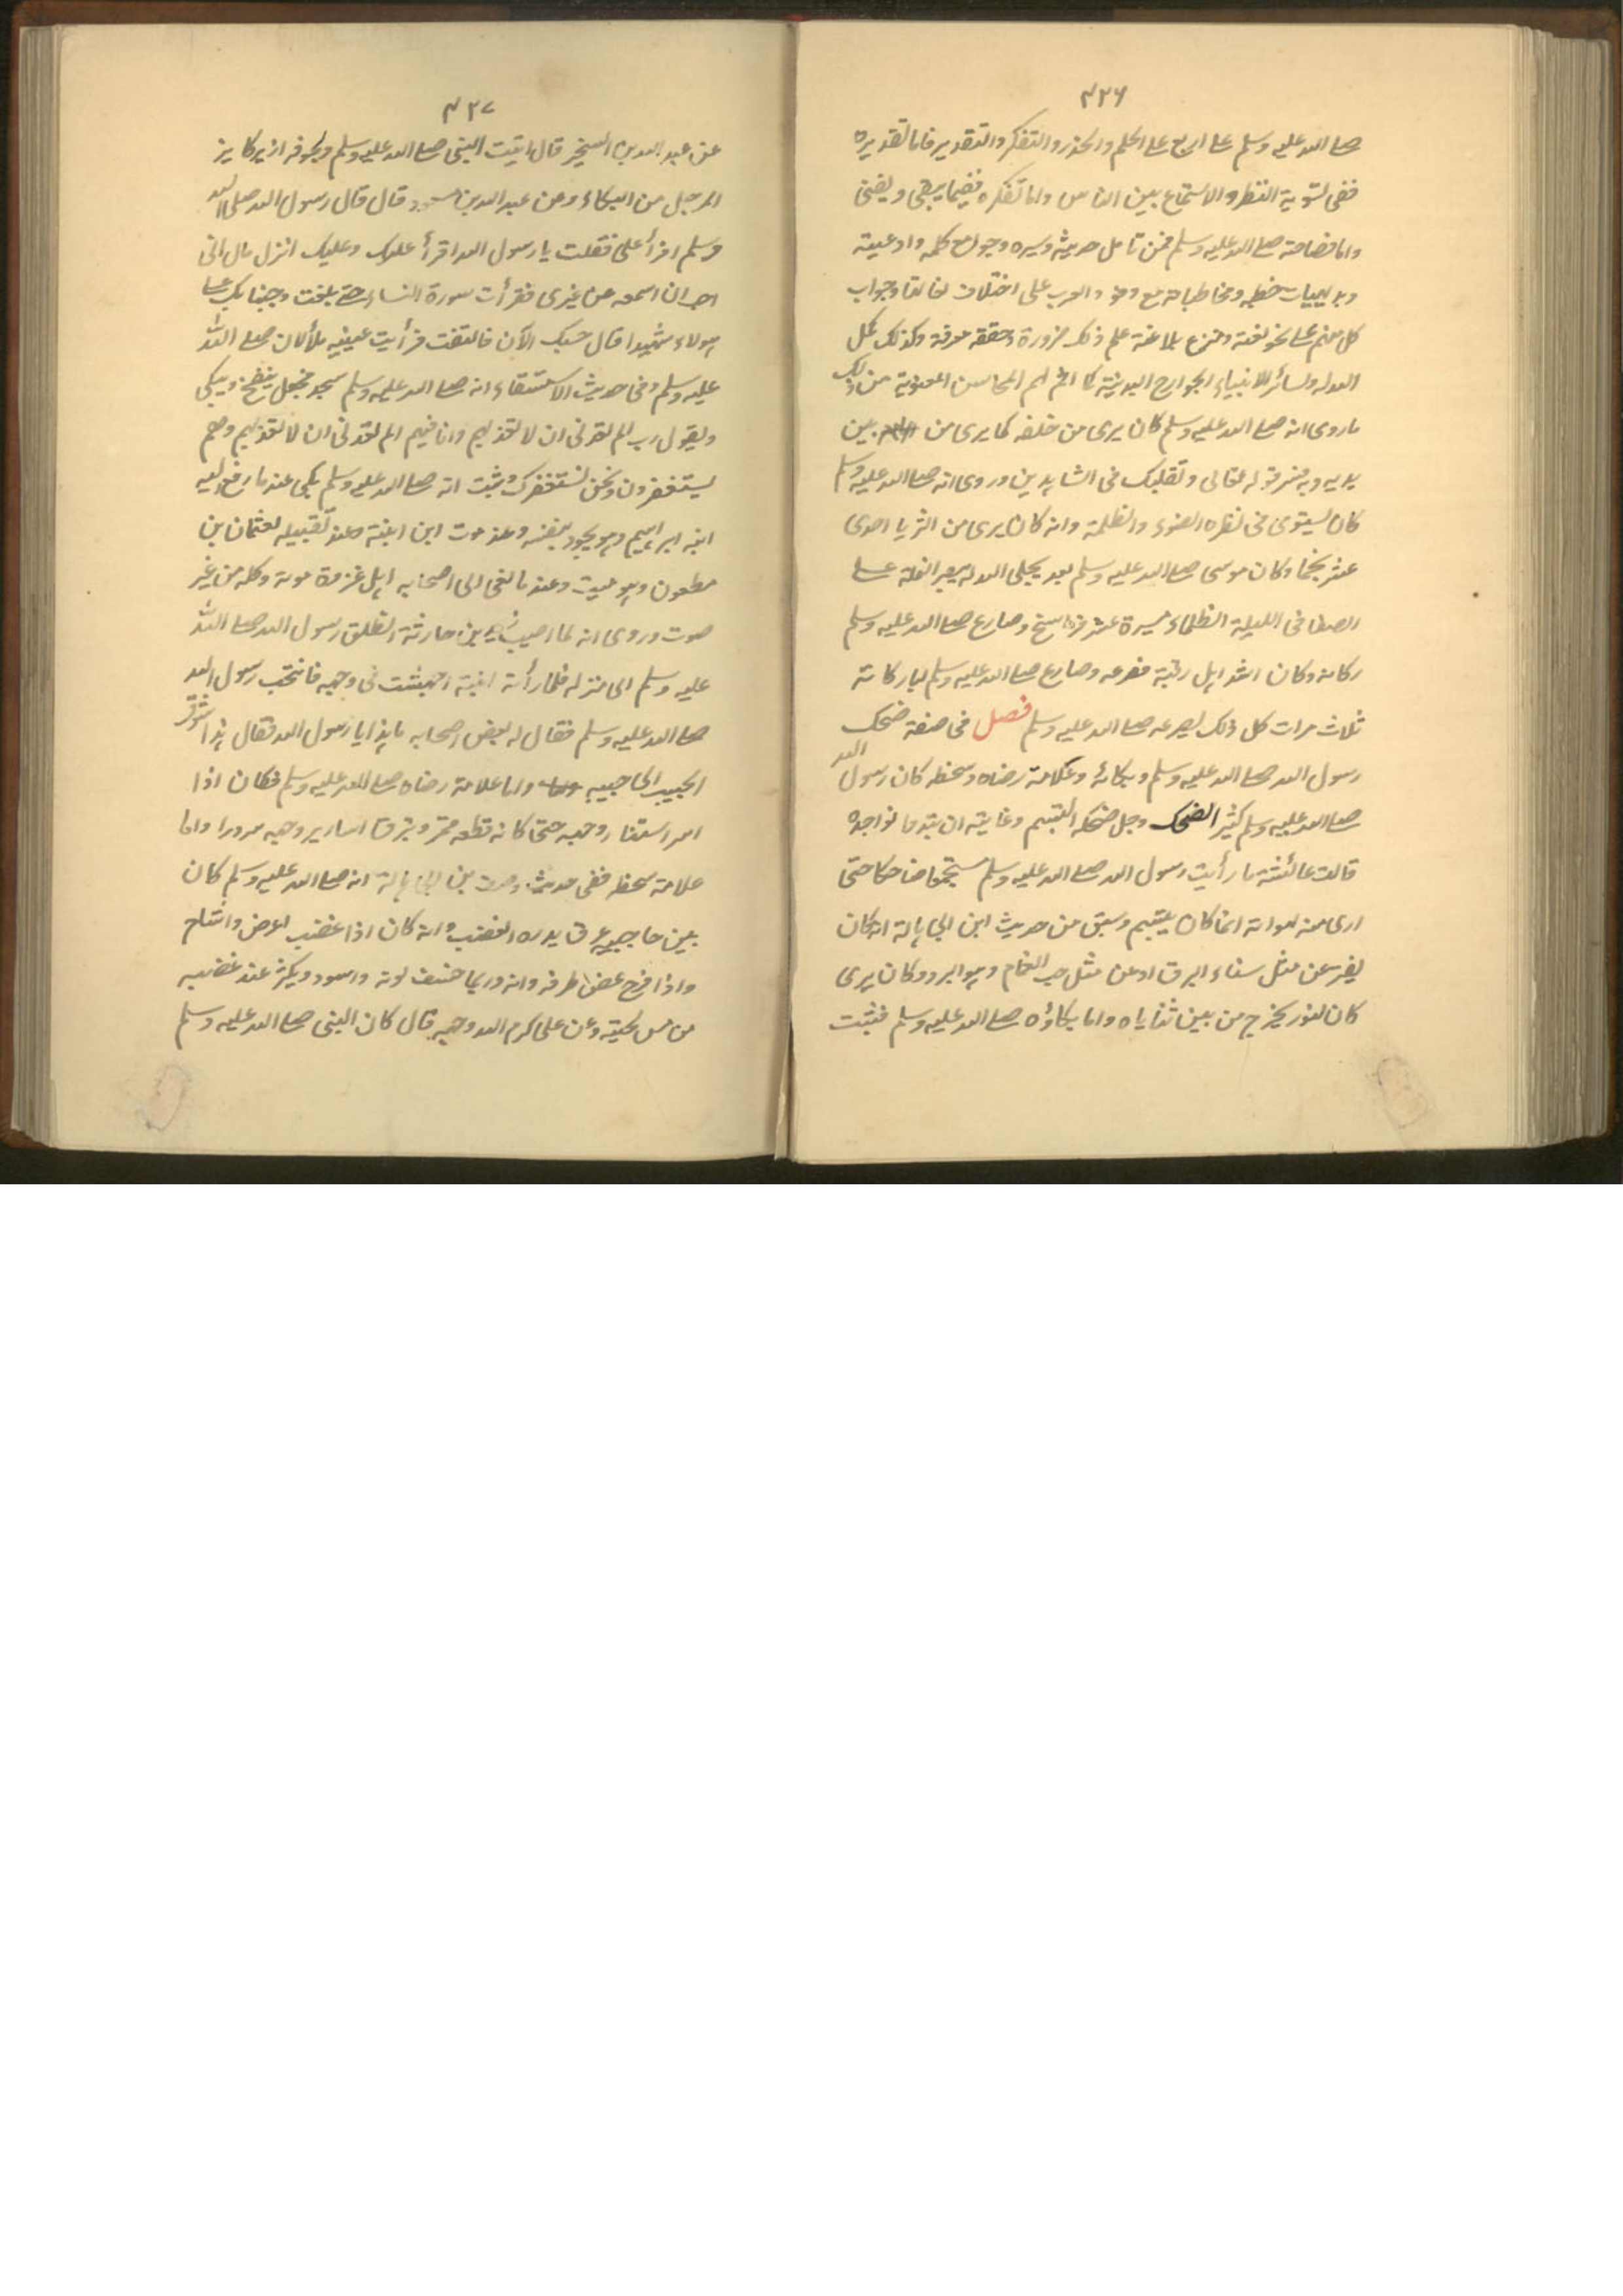 ٤٢٦
صلى الله عليه وسلم على اربع على الحلم والحذر والتفكر والتقدير فاما تقديره
ففى تسوية النظر والاستماع بين الناس واما تفكره ففيما يبقى ويفنى
واما فصاحته صلى الله عليه وسلم فمن تامل حديثه وسيره وجوامع كلمه وادعيته
وبديهيات خطبه ومخاطباته مع وفود العرب على اختلاف لغاتها وجواب
كل منهم على نحو لغته ومنزع بلاغته علم ذلك ضرورة وحققه معرفة وكذلك كمل
الله له ولسائر الانبياء الجوارح البدنية كما اتم لهم المحاسن المعنوية من ذلك
ما روى انه صلى الله عليه وسلم كان يرى من خلفه كما يرى من بين
يديه وبه فسر قوله تعالى وتقلبك فى الساجدين وروى انه صلى الله عليه وسلم
كان يستوى فى نظره الضوء والظلمة وانه كان يرى من الثريا احدى
عشر نجما وكان موسى صلى الله عليه وسلم بعد تجلى الله له يبصر النملة على
الصفا فى الليلة الظلماء مسيرة عشر فراسخ وصارع صلى الله عليه وسلم
ركانة وكان اشد اهل وقته فصرعه وصارع صلى الله عليه وسلم ابا ركانة
ثلاث مرات كل ذلك يصرعه صلى الله عليه وسلم فصل فى صفة ضحك
رسول الله صلى الله عليه وسلم وبكائه وعلامة رضاه وسخطه كان رسول الله
صلى الله عليه وسلم كثير الضحك وجل ضحكه التبسم وغايته ان تبدوا نواجذه
قالت عائشة ما رأيت رسول الله صلى الله عليه وسلم مستجمعا ضاحكا حتى
ارى منه لهواته انما كان يتبسم وسبق من حديث ابن ابى هالة انه كان
يفتر عن مثل سناء البرق او عن مثل حب الغمام وهو البرد وكان يرى
كان النور يخرج من بين ثناياه واما بكاؤه صلى الله عليه وسلم فثبت
٤٢٧
عن عبد الله بن الشخير قال اتيت النبى صلى الله عليه وسلم ولجوفه ازيز كازيز
المرجل من البكاء وعن عبد الله بن مسعود قال قال رسول الله صلى الله عليه
وسلم اقرأ على فقلت يا رسول الله اقرأ عليك وعليك انزل قال انى
احب ان اسمعه من غيرى فقرأت سورة النساء حتى بلغت وجئنا بك على
هولاء شهيدا قال حسبك الآن فالتفت فرأيت عينيه تهملان صلى الله
عليه وسلم وفى حديث الاستسقاء انه صلى الله عليه وسلم سجد فجعل ينفخ ويبكى
ويقول رب الم تعدنى ان لا تعذبهم وانا فيهم الم تعدنى ان لا تعذبهم وهم
يستغفرون ونحن نستغفرك وثبت انه صلى الله عليه وسلم بكى عند ما رفع اليه
ابنه ابراهيم وهو يجود بنفسه وعند موت ابن ابنته وعند تقبيله لعثمان بن
مظعون وهو ميت وعند ما نعى الى اصحابه اهل غزوة موتة وكله من غير
صوت وروى انه لما اصيب زيد بن حارثة انطلق رسول الله صلى الله
عليه وسلم الى منزله فلما رأته ابنته اجهشت فى وجهه فانتحب رسول الله
صلى الله عليه وسلم فقال له بعض اصحابه ما هذا يا رسول الله فقال هذا شوق
الحبيب الى حبيبه واما علامة رضاه صلى الله عليه وسلم فكان اذا
اسر استنار وجهه حتى كانه قطعه قمر وتبرق اسارير وجهه سرورا واما
علامة سخطه ففى حديث وصف بن ابى هالة انه صلى الله عليه وسلم كان
بين حاجبيه عرق يدره الغضب وانه كان اذا غضب اعرض واشاح
واذا فرح غض طرفه وانه وربما خسف لونه واسود ويكثر عند غضبه
من مس لحيته وعن على كرم الله وجهه قال كان النبى صلى الله عليه وسلم